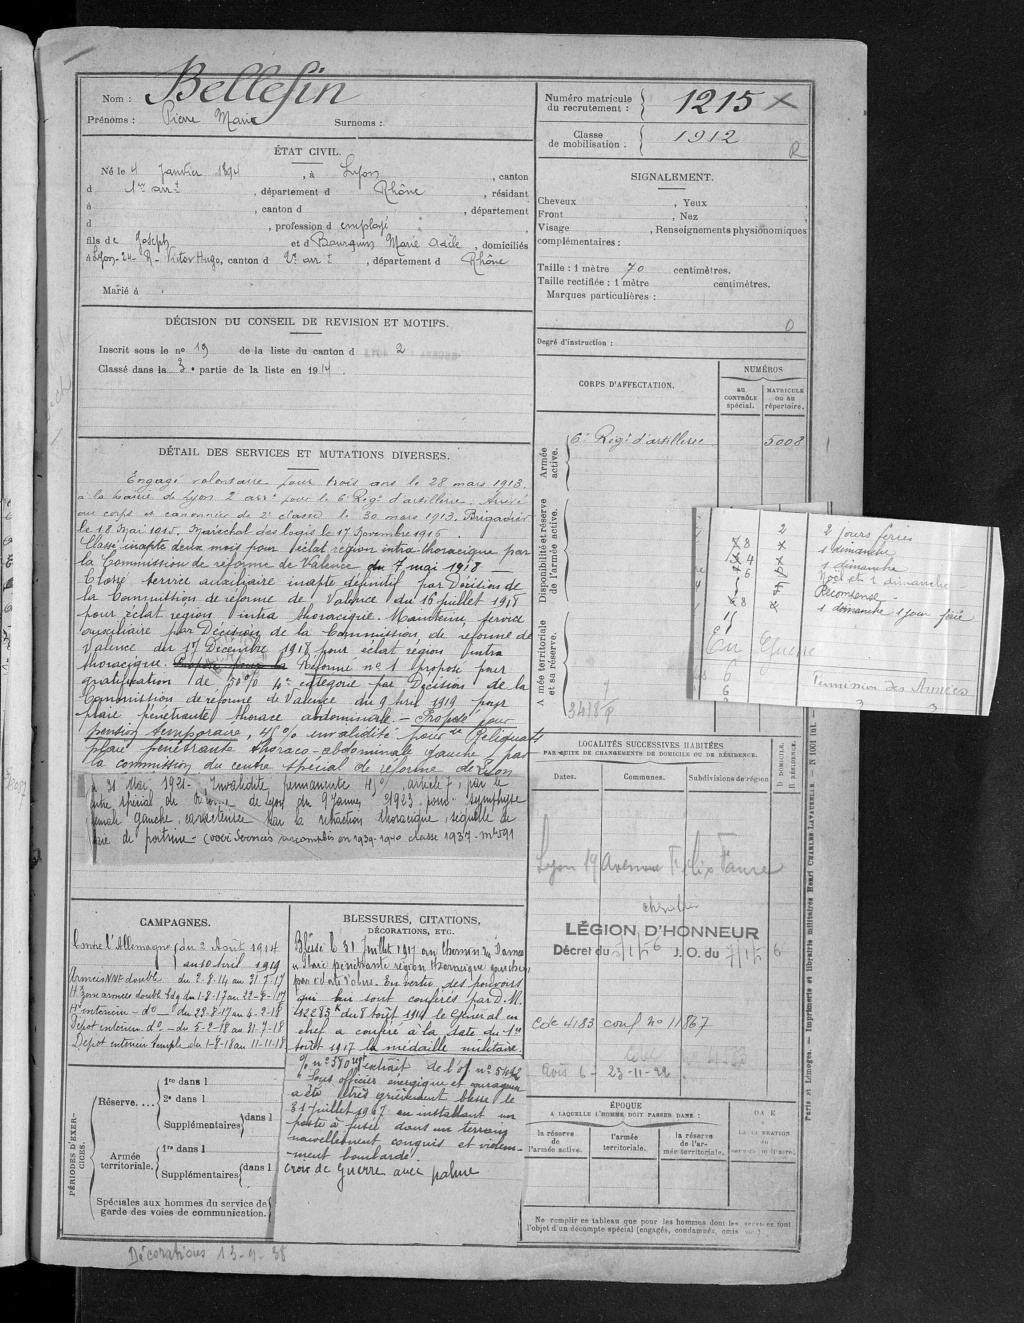 Nom : Bellefin
Prénoms : Pierre Marie Surnoms :
Numéro matricule du recrutement : 1215
Classe de mobilisation : 1912
R
ÉTAT CIVIL.
Né le 4 Janvier 1894, à Lyon, canton
d 1er arrt, département d Rhône, résidant
à , canton d , département
d , profession d employé
fils de Joseph et d Bourguin Marie Adèle, domiciliés
à Lyon-24- R- Victor Hugo, canton d 2e arrt, département d Rhône
Marié à
SIGNALEMENT.
Cheveux , Yeux ,
Front , Nez ,
Visage , Renseignements physionomiques
complémentaires :
Taille : 1 mètre 70 centimètres.
Taille rectifiée : 1 mètre centimètres.
Marques particulières :
0
Degré d'instruction :
DÉCISION DU CONSEIL DE REVISION ET MOTIFS.
Inscrit sous le no 19 de la liste du canton d 2
Classé dans la 3e partie de la liste en 1914.
CORPS D'AFFECTATION.
NUMÉROS
au CONTRÔLE spécial.
MATRICULE ou au répertoire.
Armée active.
6e Régt d'artillerie 5008
Disponibilité et réserve de l'armée active.
Armée territoriale et sa réserve.
3418 P
DÉTAIL DES SERVICES ET MUTATIONS DIVERSES.
Engagé volontaire pour trois ans le 28 mars 1913.
à la mairie de Lyon 2 arrt pour le 6 Régt d'artillerie. Arrivé
au corps et canonnier de 2e classe le 30 mars 1913. Brigadier
le 18 Mai 1915. Maréchal des logis le 17 Novembre 1915
Classé inapte deux mois pour éclat région intra thoracique par
la Commission de réforme de Valence du 7 mai 1918 -
Classé service auxiliaire inapte définitif par Décision de
la Commission de réforme de Valence du 16 juillet 1918
pour éclat région intra thoracique. Maintenu service
auxiliaire par Décision de la Commission de réforme de
Valence du 17 Décembre 1918 pour éclat région intra
thoracique. Proposé pour la Réformé no 1 proposé pour
gratification de 50% 4e catégorie par Décision de la
Commission de réforme de Valence du 9 Avril 1919 pour
plaie pénétrante thorace abdominale. - Proposé pour
pension temporaire, 45% invalidité pour Reliquats
plaie pénétrante thoraco-abdominale gauche, par
la commission du centre spécial de réforme de Lyon
31 Mai 1921. Invalidité permanente 45%, article 7, par le
centre spécial de Réforme de Lyon du 9 Janvier 1923 pour symphyse
gauche, caractérisée par la rétraction thoracique, séquelle de
plaie de poitrine - accomplis en 1939-1940 classe 1937- mle 591
2 2 jours fériés
8 1 dimanche
4 1 dimanche
6 Noël et 1 dimanche
Récompense
8 1 dimanche 1 jour férié
15
En Guerre
6 Permission des Armées
6
3 3
LOCALITÉS SUCCESSIVES HABITÉES
PAR SUITE DE CHANGEMENTS DE DOMICILE OU DE RÉSIDENCE.
Dates. Communes. Subdivisions de région
D DOMICILE. R RÉSIDENCE.
Lyon 19 Avenue Félix Faure
chevalier
LÉGION D'HONNEUR
Décret du 5/1/56 J.O. du 7/1/56
Cde 4183 conf no 11867
Avis 6 - 23-11-22
CAMPAGNES.
Contre l'Allemagne du 2 Août 1914
au 10 Avril 1919
Armées NNE double du 2-8-14 au 31-7-17
Hal zone armées double bdg du 1-8-17 au 22-8-17
Hal intérieur - do - du 23-8-17 au 4-2-18
Dépôt intérieur do - du 5-2-18 au 31-7-18
Dépôt intérieur simple du 1-8-18 au 11-11-18
BLESSURES, CITATIONS, DÉCORATIONS, ETC.
Blessé le 31 juillet 1917 au Chemin des Dames
Plaie pénétrante région thoracique gauche
par éclat d'obus. En vertu des pouvoirs
qui lui sont conférés par D.M.
12285 du 8 Août 1914 le Général en
chef a conféré à la date du 1er
août 1917 la médaille militaire.
O/ no 580 régt extrait de l'of no 5442
Sous officier énergique et courageux
a été très grièvement blessé le
31 juillet 1917 en installant un
poste à fusée dans un terrain
nouvellement conquis et violem-
-ment bombardé.
croix de guerre avec palme
PÉRIODES D'EXERCICES.
Réserve.... 1re dans l
2e dans l
Supplémentaires dans l
Armée territoriale. 1re dans l
Supplémentaires dans l
Spéciales aux hommes du service de
garde des voies de communication.
ÉPOQUE
A LAQUELLE L'HOMME DOIT PASSER DANS :
la réserve de l'armée active.
l'armée territoriale.
la réserve de l'armée territoriale.
DATE
DE LA LIBÉRATION du service militaire.
Ne remplir ce tableau que pour les hommes dont les services font
l'objet d'un décompte spécial (engagés, condamnés, omis etc.)
Paris et Limoges. — Imprimerie et librairie militaires Henri CHARLES-LAVAUZELLE. —
Décorations 13-9-38